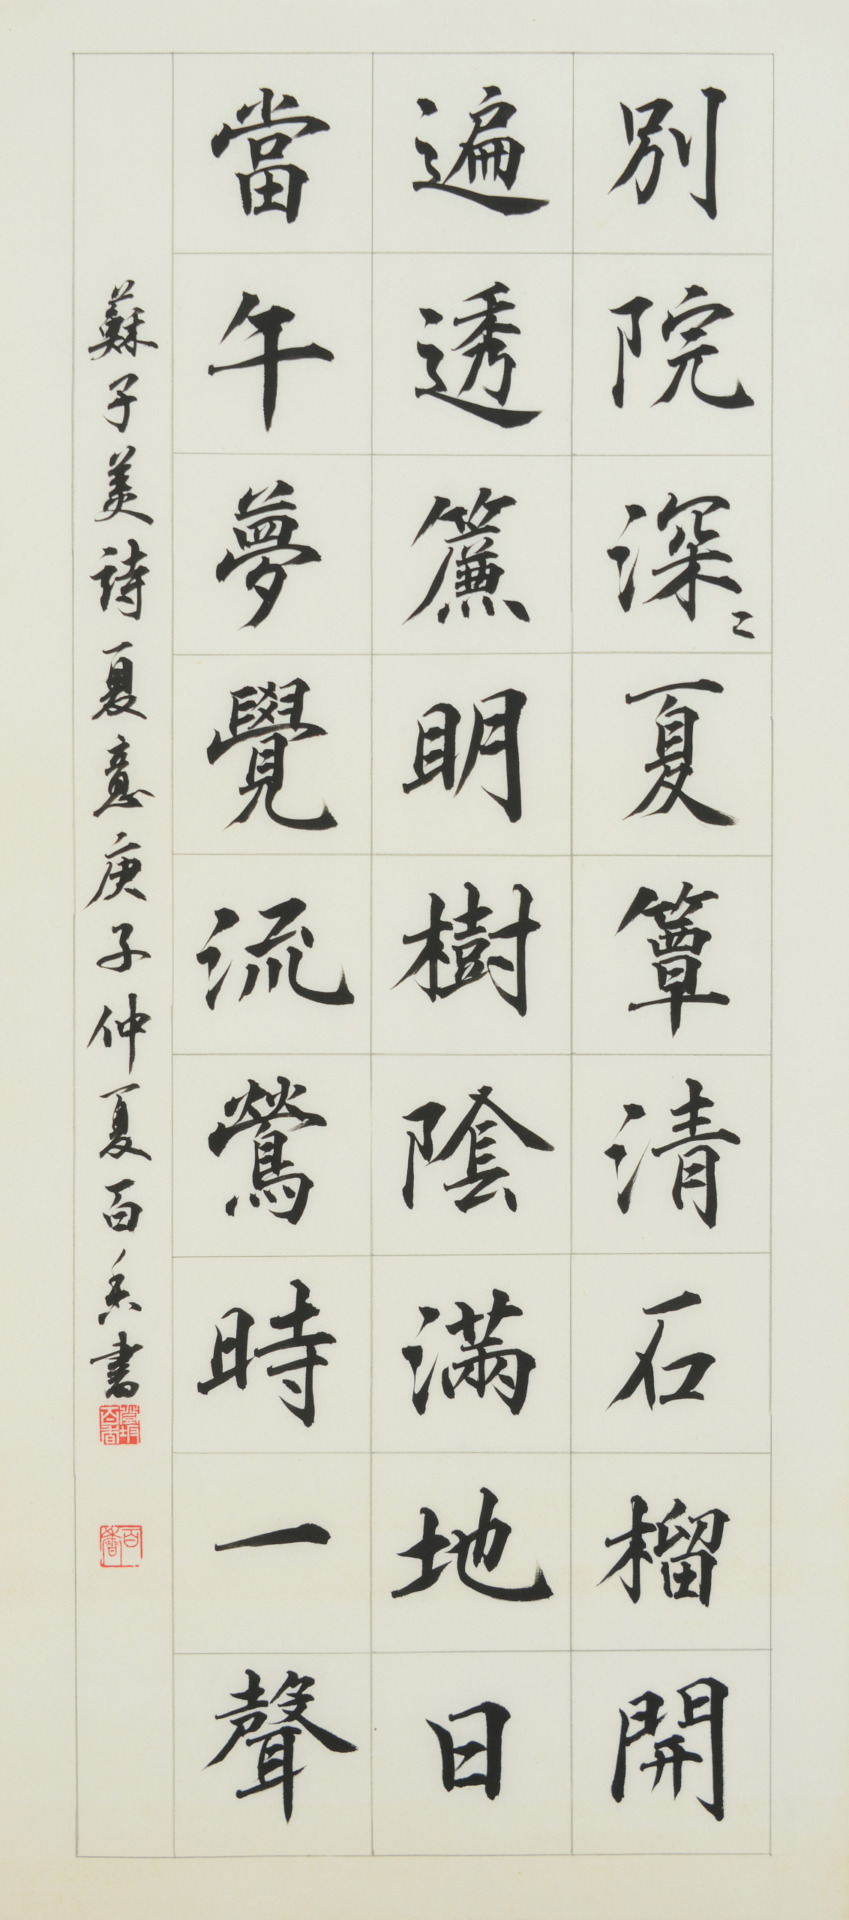 別院深〻夏簟清石榴開
遍透簾明樹陰滿地日
當午夢覺流鶯時一聲
蘇子美詩夏意庚子仲夏百香書
百香